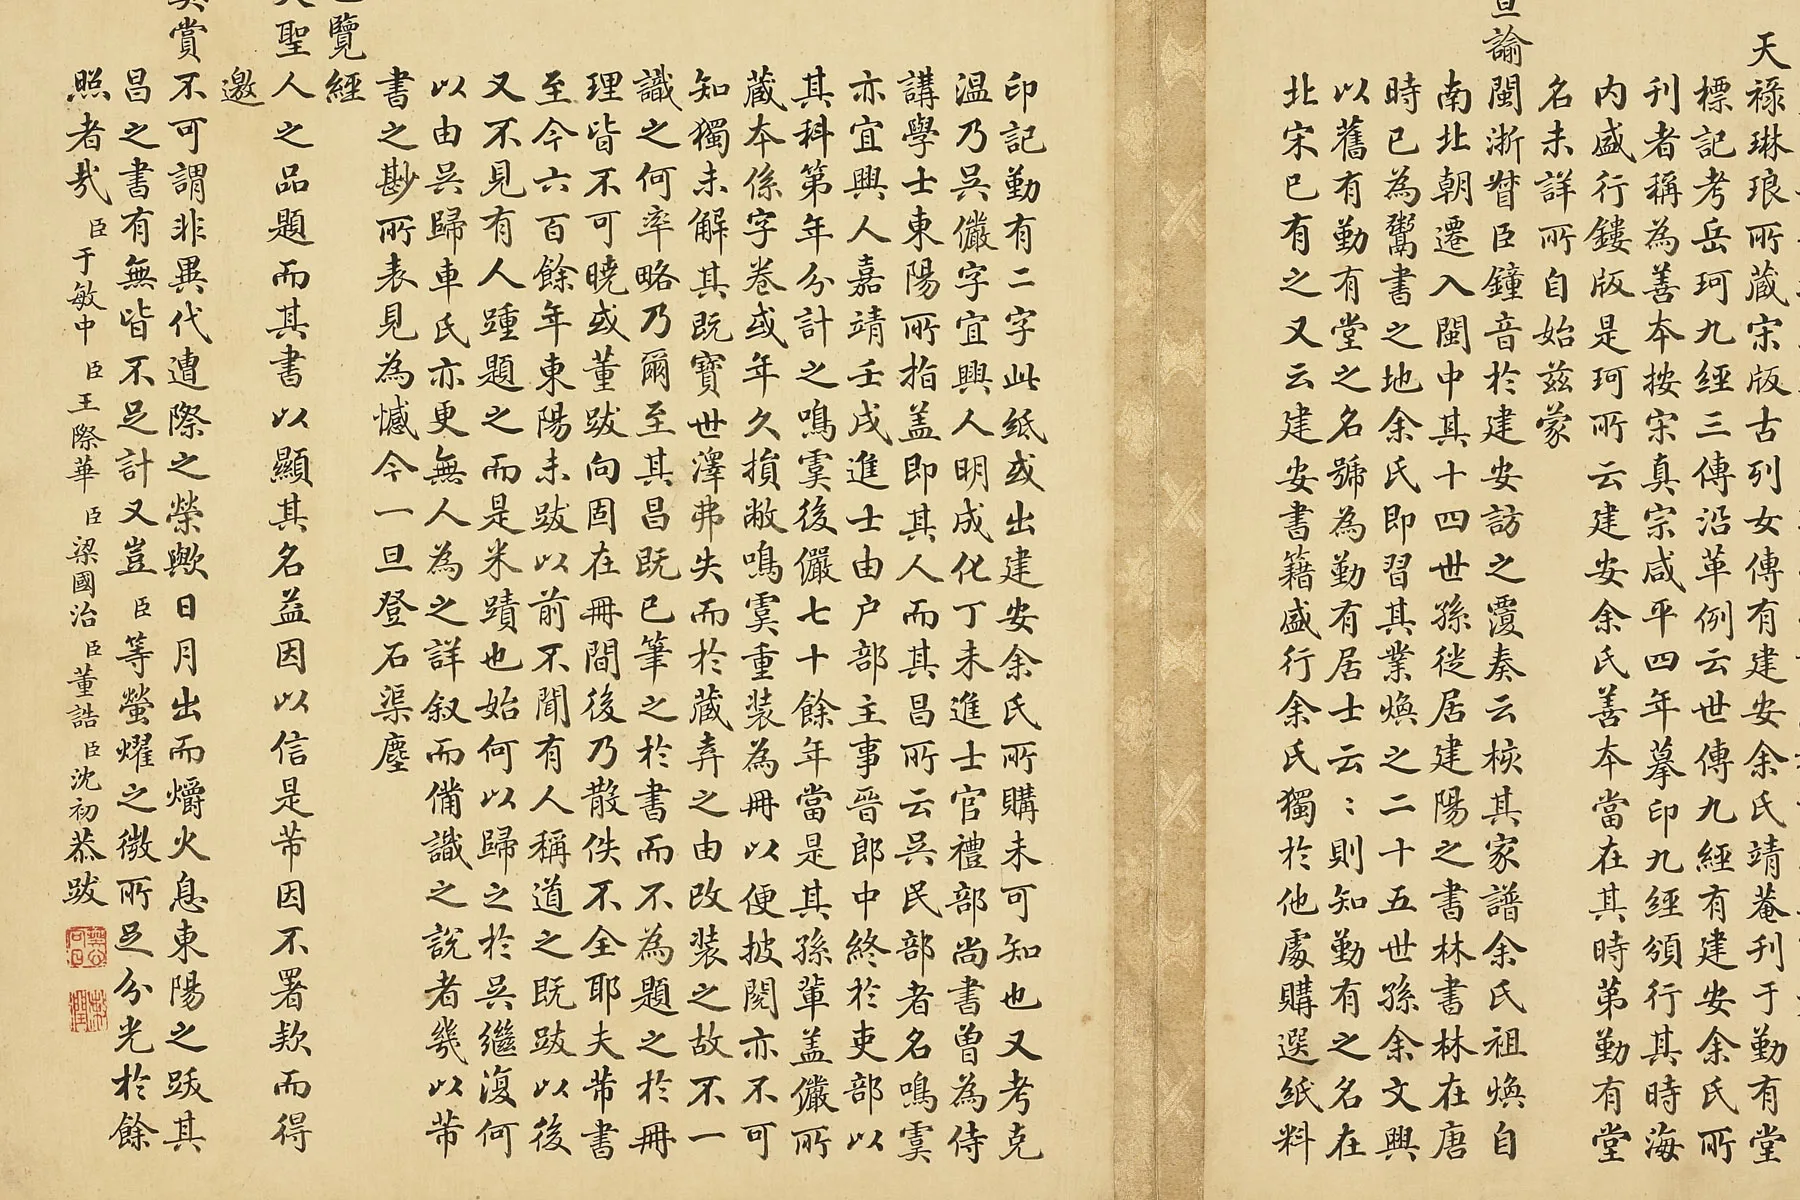 天祿琳琅所藏宋版古列女傳有建安余氏靖菴刊于勤有堂
標記考岳珂九經三傳沿革例云世傳九經有建安余氏所
刊者稱為善本按宋真宗咸平四年摹印九經頒行其時海
内盛行鏤版是珂所云建安余氏善本當在其時第勤有堂
名未詳所自始兹蒙
旦諭閩浙督臣鐘音於建安訪之覆奏云核其家譜余氏祖煥自
南北朝遷入閩中其十四世孫徙居建陽之書林書林在唐
時已為鬻書之地余氏即習其業煥之二十五世孫余文興
以舊有勤有堂之名號為勤有居士云云則知勤有之名在
北宋已有之又云建安書籍盛行余氏獨於他處購選紙料
印記勤有二字此紙或出建安余氏所購未可知也又考克
温乃吴儼字宜興人明成化丁未進士官禮部尚書曽為侍
講學士東陽所指盖即其人而其昌所云吴民部者名鳴虞
亦宜興人嘉靖壬戌進士由户部主事晉郎中終於吏部以
其科第年分計之鳴虞後儼七十餘年當是其孫輩盖儼所
藏本係字卷或年久損敝鳴虞重装為冊以便披閱亦不可
知獨未解其既寶世澤弗失而於藏弆之由改装之故不一
識之何率略乃爾至其昌既已筆之於書而不為題之於冊
理皆不可曉或董跋向固在冊間後乃散佚不全耶夫芾書
至今六百餘年東陽未跋以前不聞有人稱道之既跋以後
又不見有人踵題之而是米蹟也始何以歸之於吴繼復何
以由吴歸車氏亦更無人為之詳叙而備識之說者幾以芾
書之尠所表見為憾今一旦登石渠塵
覽經
聖人之品題而其書以顯其名益因以信是芾因不署欵而得
邀
賞不可謂非異代遭際之榮歟日月出而爝火息東陽之跋其
昌之書有無皆不足計又豈臣等螢燿之微所足分光於餘
照者哉臣于敏中臣王際華臣梁國治臣董誥臣沈初恭跋